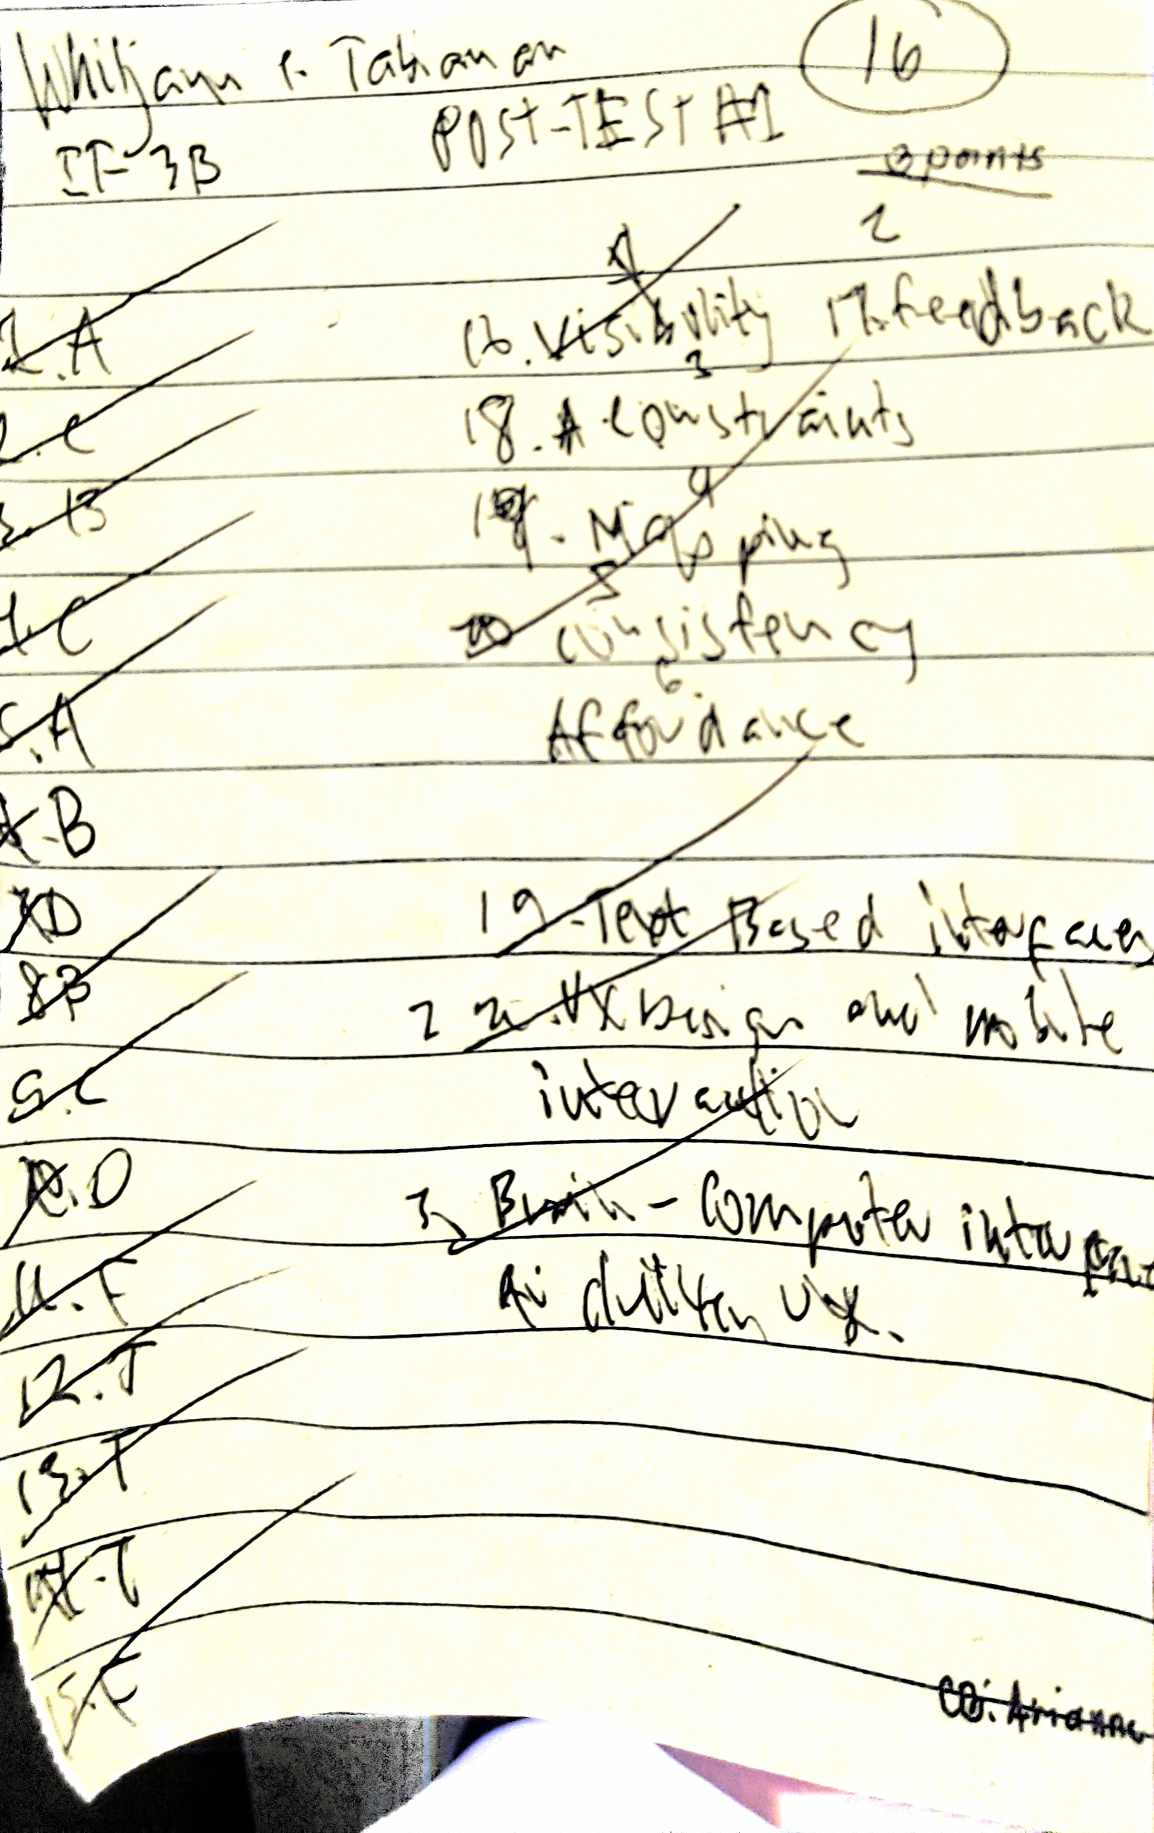 16
POST-TEST #1
IT-3B
3 points
1.A
2.C
3.B
4.C
5.A
6.B
7.D
8.B
9.C
10.D
11.F
12.T
13.T
14.T
15.F
1 2
16. Visibility 17. feedback
3
18. Constraints
4
19. Mapping
5
20 Consistency
6
Affordance
19-Text Based interfaces
2 UX Design and mobile
interaction
3 Brain-Computer
Ai UX.
CB: Arianne